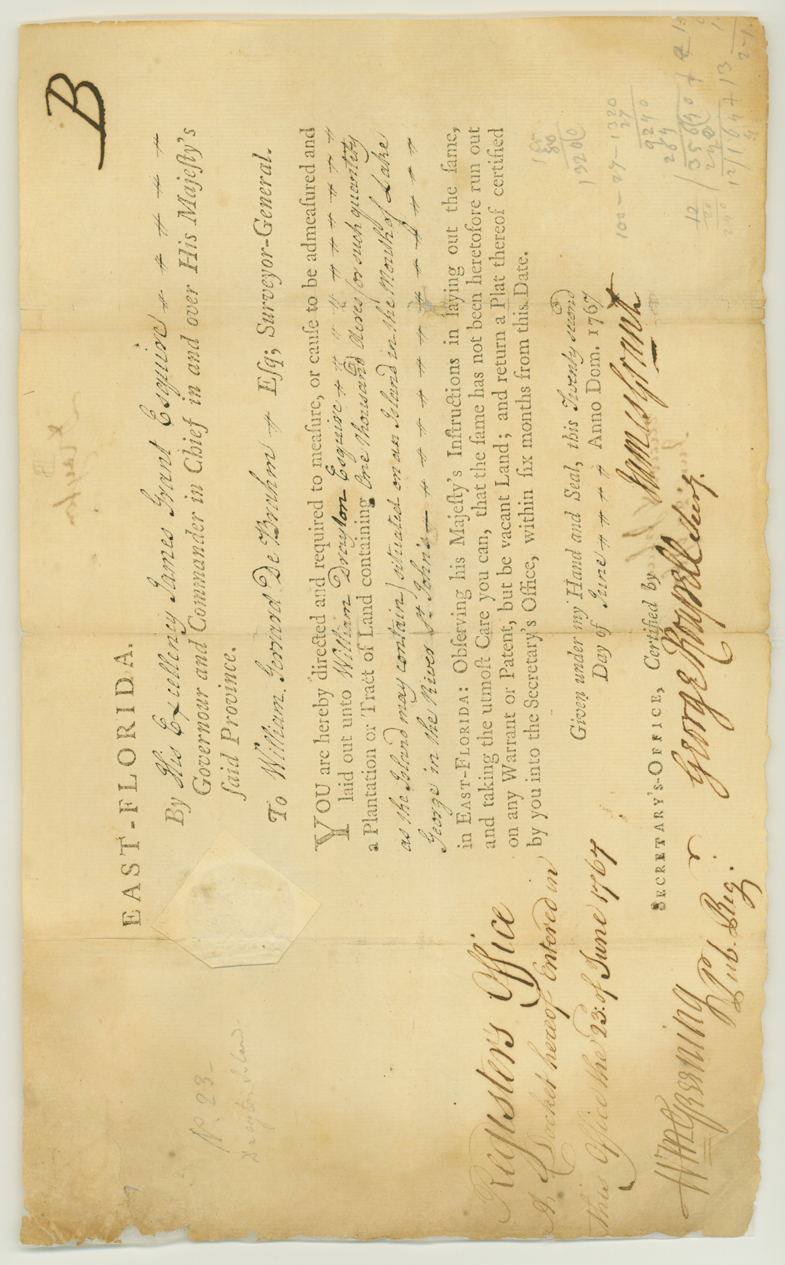 B
EAST-FLORIDA.
By His Excellency James Grant Esquire
Governour and Commander in Chief in and over His Majeſty's
ſaid Province.
To William Gerrard De Brahm Eſq; Surveyor-General.
YOU are hereby directed and required to meaſure, or cauſe to be admeaſured and
laid out unto William Drayton Esquire
a Plantation or Tract of Land containing One thousand Acres (or such quantity
as the Island may contain) situated on an Island in the Mouth of Lake
George in the River St. John's
in EAST-FLORIDA: Obſerving his Majeſty's Inſtructions in laying out the ſame,
and taking the utmoſt Care you can, that the ſame has not been heretofore run out
on any Warrant or Patent, but be vacant Land; and return a Plat thereof certified
by you into the Secretary's Office, within ſix months from this Date.
Given under my Hand and Seal, this Twenty second
Day of June Anno Dom. 1767
James Grant
SECRETARY'S-OFFICE, Certified by
George Rowpell
Registers Office
A Docket hereof Entered in
this Office the 23: of June 1767
Wm Greening
Pub. Reg.
N. 23
Drayton Island
12
13200
100 - 27 - 1320
27
9240
264
35640